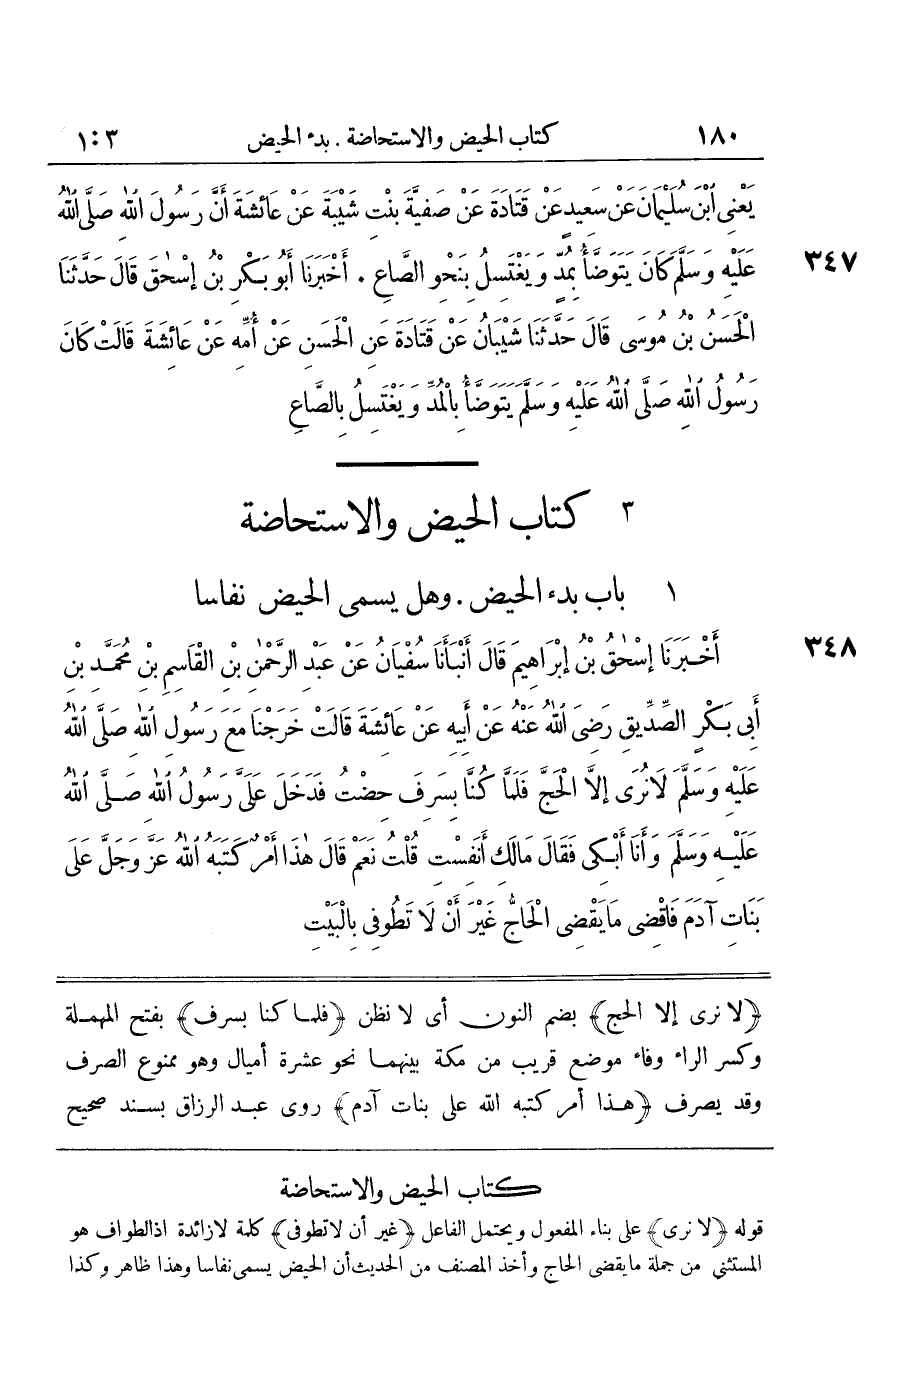 ١٨٠ كتاب الحيض والاستحاضة . بدء الحيض ٣ : ١
يَعْنِى ابْنَ سُلَيْمَانَ عَنْ سَعِيدٍ عَنْ قَتَادَةَ عَنْ صَفِيَّةَ بِنْتِ شَيْبَةَ عَنْ عَائِشَةَ أَنَّ رَسُولَ اللهِ صَلَّى اللهُ
عَلَيْهِ وَسَلَّمَ كَانَ يَتَوَضَّأُ بِمُدٍّ وَيَغْتَسِلُ بِنَحْوِ الصَّاعِ . أَخْبَرَنَا أَبُو بَكْرِ بْنُ إِسْحٰقَ قَالَ حَدَّثَنَا ٣٤٧
الْحَسَنُ بْنُ مُوسَى قَالَ حَدَّثَنَا شَيْبَانُ عَنْ قَتَادَةَ عَنِ الْحَسَنِ عَنْ أُمِّهِ عَنْ عَائِشَةَ قَالَتْ كَانَ
رَسُولُ اللهِ صَلَّى اللهُ عَلَيْهِ وَسَلَّمَ يَتَوَضَّأُ بِالْمُدِّ وَيَغْتَسِلُ بِالصَّاعِ
٣ كتاب الحيض والاستحاضة
١ باب بدء الحيض . وهل يسمى الحيض نفاسا
أَخْبَرَنَا إِسْحٰقُ بْنُ إِبْرَاهِيمَ قَالَ أَنْبَأَنَا سُفْيَانُ عَنْ عَبْدِ الرَّحْمٰنِ بْنِ الْقَاسِمِ بْنِ مُحَمَّدِ بْنِ ٣٤٨
أَبِى بَكْرٍ الصِّدِّيقِ رَضِىَ اللهُ عَنْهُ عَنْ أَبِيهِ عَنْ عَائِشَةَ قَالَتْ خَرَجْنَا مَعَ رَسُولِ اللهِ صَلَّى اللهُ
عَلَيْهِ وَسَلَّمَ لَا نُرَى إِلَّا الْحَجَّ فَلَمَّا كُنَّا بِسَرِفَ حِضْتُ فَدَخَلَ عَلَىَّ رَسُولُ اللهِ صَلَّى اللهُ
عَلَيْهِ وَسَلَّمَ وَأَنَا أَبْكِى فَقَالَ مَالَكِ أَنَفِسْتِ قُلْتُ نَعَمْ قَالَ هٰذَا أَمْرٌ كَتَبَهُ اللهُ عَزَّ وَجَلَّ عَلَى
بَنَاتِ آدَمَ فَاقْضِى مَا يَقْضِى الْحَاجُّ غَيْرَ أَنْ لَا تَطُوفِى بِالْبَيْتِ
﴿لا نرى إلا الحج﴾ بضم النون أى لا نظن ﴿فلما كنا بسرف﴾ بفتح المهملة
وكسر الراء وفاء موضع قريب من مكة بينهما نحو عشرة أميال وهو ممنوع الصرف
وقد يصرف ﴿هذا أمر كتبه الله على بنات آدم﴾ روى عبد الرزاق بسند صحيح
كتاب الحيض والاستحاضة
قوله ﴿لا نرى﴾ على بناء المفعول ويحتمل الفاعل ﴿غير أن لا تطوفى﴾ كلمة لا زائدة اذ الطواف هو
المستثنى من جملة ما يقضى الحاج وأخذ المصنف من الحديث أن الحيض يسمى نفاسا وهذا ظاهر وكذا